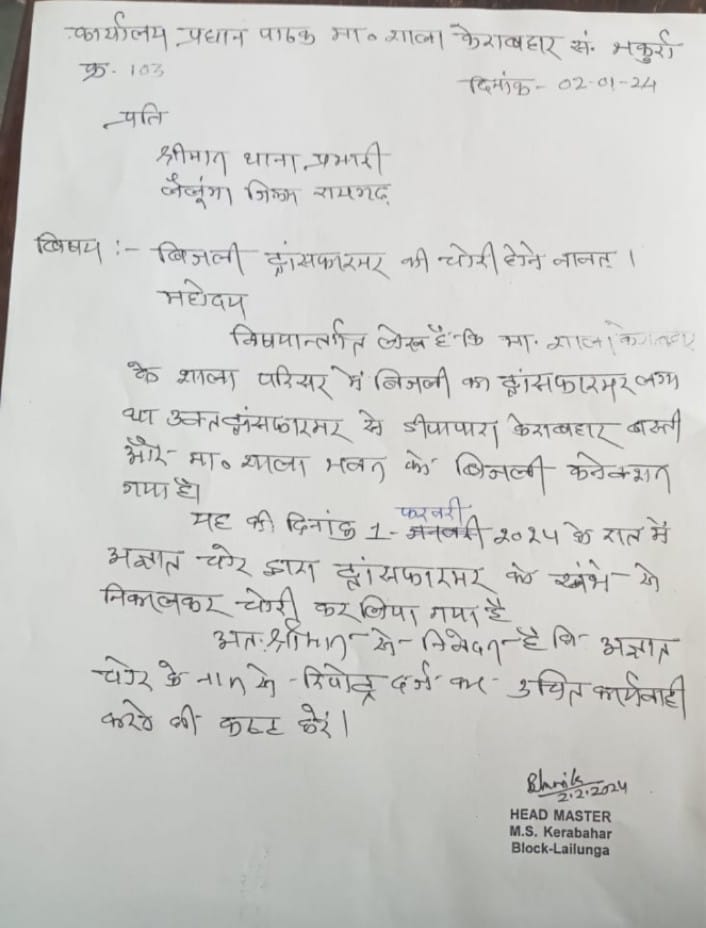 कार्यालय प्रधान पाठक मा० शाला केराबहार सं. भकुर्रा
क्र. 103
दिनांक - 02-01-24
प्रति
श्रीमान थाना प्रभारी
लैलूंगा जिला रायगढ़
बिषय :- बिजली ट्रांसफारमर की चोरी होने बाबत् ।
महोदय
बिषयान्तर्गत लेख है कि मा. शाला केराबहार
के शाला परिसर में बिजली का ट्रांसफारमर लगा
था उक्त ट्रांसफारमर से डीपापारा केराबहार बस्ती
और मा० शाला भवन को बिजली कनेक्शन
गया है।
यह की दिनांक 1- फरवरी जनवरी 2024 के रात में
अज्ञात चोर द्वारा ट्रांसफारमर को खंभे से
निकालकर चोरी कर लिया गया है
अतः श्रीमान से निवेदन है कि अज्ञात
चोर के नाम से रिपोर्ट दर्ज कर उचित कार्यवाही
करने की कष्ट करें।
2.2.2024
HEAD MASTER
M.S. Kerabahar
Block-Lailunga